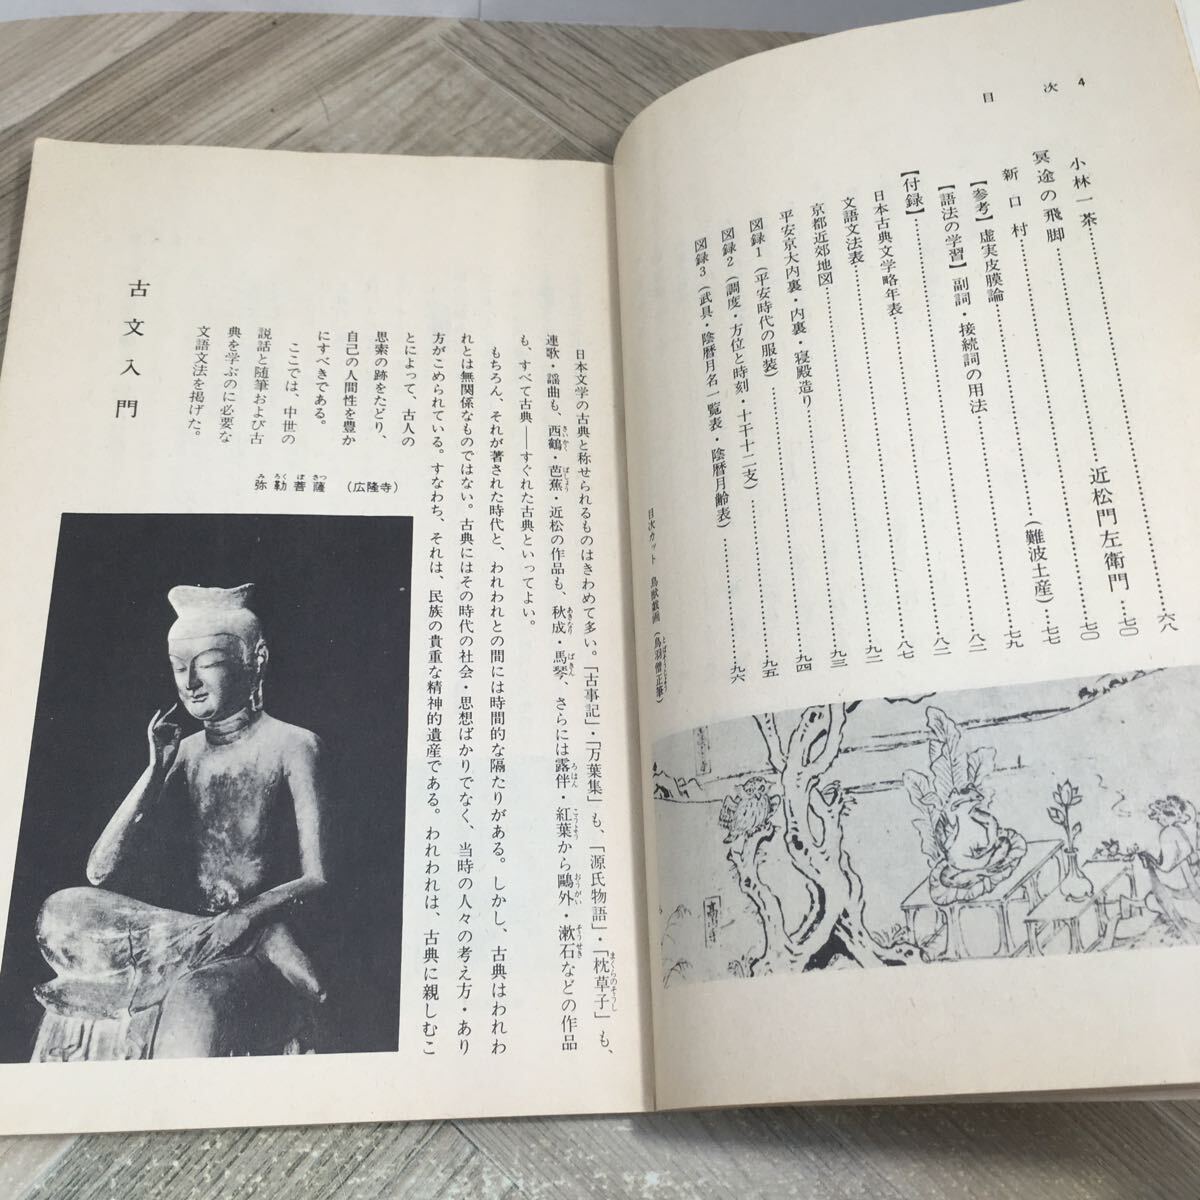 目次 4
小林一茶……六八
冥途の飛脚……近松門左衛門……七〇
新口村……七〇
【参考】虚実皮膜論……(難波土産)……七七
【語法の学習】副詞・接続詞の用法……七九
【付録】……八二
日本古典文学略年表……八二
文語文法表……八七
京都近郊地図……九二
平安京大内裏・内裏・寝殿造り……九三
図録1(平安時代の服装)……九四
図録2(調度・方位と時刻・十干十二支)……九五
図録3(武具・陰暦月名一覧表・陰暦月齢表)……九六
目次カット 鳥獣戯画(鳥羽僧正筆)
とばそうじょう
日本文学の古典と称せられるものはきわめて多い。「古事記」・「万葉集」も、「源氏物語」・「枕草子」も、
まくらのそうし
連歌・謡曲も、西鶴・芭蕉・近松の作品も、秋成・馬琴、さらには露伴・紅葉から鷗外・漱石などの作品
さいかく ばしょう あきなり ばきん ろはん こうよう おうがい そうせき
も、すべて古典――すぐれた古典といってよい。
もちろん、それが著された時代と、われわれとの間には時間的な隔たりがある。しかし、古典はわれわ
れとは無関係なものではない。古典にはその時代の社会・思想ばかりでなく、当時の人々の考え方・あり
方がこめられている。すなわち、それは、民族の貴重な精神的遺産である。われわれは、古典に親しむこ
とによって、古人の
思索の跡をたどり、
自己の人間性を豊か
にすべきである。
ここでは、中世の
説話と随筆および古
典を学ぶのに必要な
文語文法を掲げた。
弥勒菩薩 (広隆寺)
みろくぼさつ
古文入門